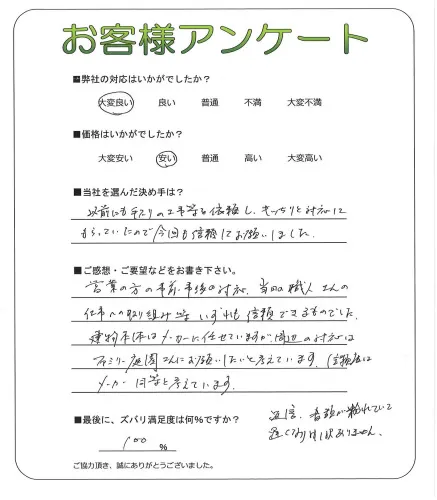 お客様アンケート
■弊社の対応はいかがでしたか?
大変良い 良い 普通 不満 大変不満
■価格はいかがでしたか?
大変安い 安い 普通 高い 大変高い
■当社を選んだ決め手は?
以前にも手スリの工事等を依頼し、きっちりと対応して
もらっていたので今回も信頼してお願いしました。
■ご感想・ご要望などをお書き下さい。
営業の方の事前事後の対応、当日の職人さんの
仕事への取り組み等いずれも信頼できるものでした。
建物本体はメーカーに任せていますが周辺の対応は
ファミリー庭園さんにお願いしたいと考えています。(信頼度は
メーカー同等と考えています。
■最後に、ズバリ満足度は何%ですか?
100 %
返信、書類が紛れていて
遅くなり申し訳ありません。
ご協力頂き、誠にありがとうございました。